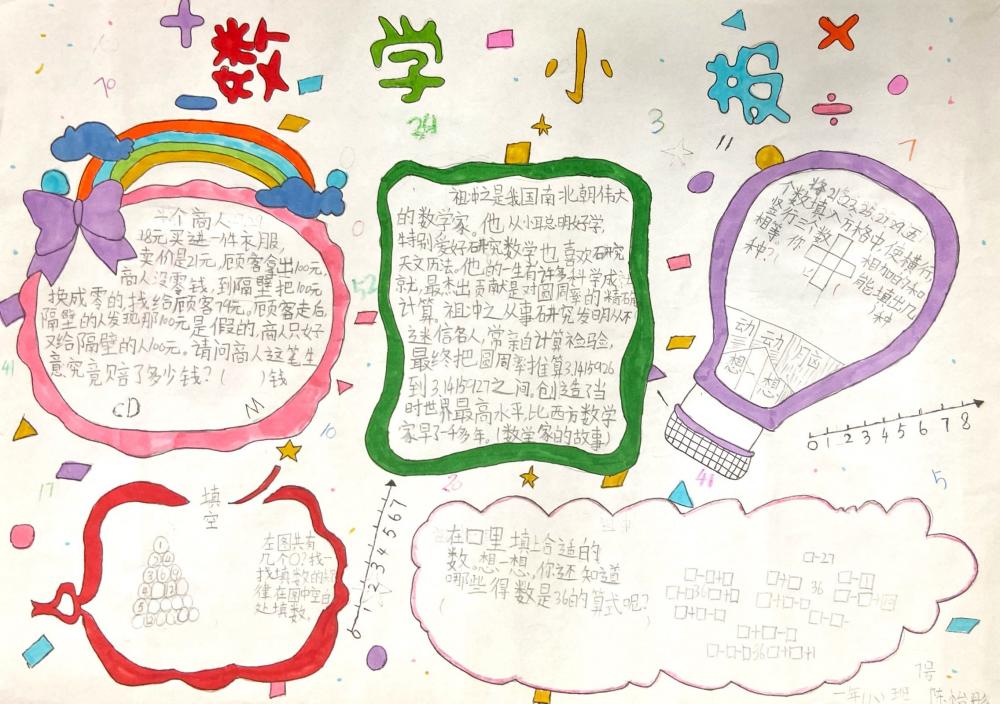 数学小报
一个商人
18元买进一件衣服,
卖价是21元,顾客拿出100元,
商人没零钱,到隔壁把100元
换成零的找给顾客79元。顾客走后,
隔壁的人发现那100元是假的,商人只好
又给隔壁的人100元。请问商人这笔生
意究竟赔了多少钱?( )钱
祖冲之是我国南北朝伟大
的数学家。他从小聪明好学,
特别爱好研究数学也喜欢研究
天文历法。他的一生有许多科学成
就,最杰出贡献是对圆周率的精确
计算。祖冲之从事研究发明从不
迷信名人,常亲自计算检验,
最终把圆周率推算3.1415926
到3.1415927之间。创造了当
时世界最高水平,比西方数学
家早了一千多年。(数学家的故事)
将21,23,25,27,29,五
个数填入方格中,使横行,
竖行三个数相加的和
相等。你能填出几
种?( )种
动动脑
想一想
0 1 2 3 4 5 6 7 8
填
空
左图共有
几个○?找一
找填数的规
律在图中空白
处填数。
0 1 2 3 4 5 6 7
在口里填上合适的
数,想一想,你还知道
哪些得数是36的算式呢?
□-27
36
7号
一年(八)班